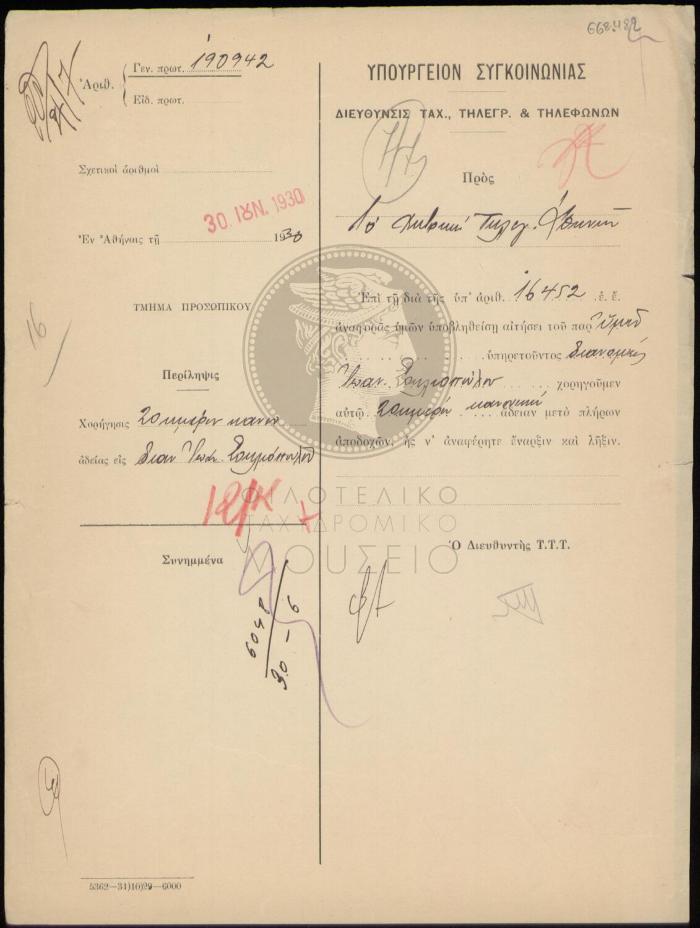 668.482
Ἀριθ.
Γεν. πρωτ. 190942
Εἰδ. πρωτ.
Σχετικοὶ ἀριθμοὶ
30 ΙΟΥΝ. 1930
Ἐν Ἀθήναις τῇ 1930
ΤΜΗΜΑ ΠΡΟΣΩΠΙΚΟΥ
16
Περίληψις
Χορήγησις 20ημέρου κανον
ἀδείας εἰς διαν. Ἰωάν.
Συνημμένα
6048
30-6
5362—31)10)29—6000
ΥΠΟΥΡΓΕΙΟΝ ΣΥΓΚΟΙΝΩΝΙΑΣ
ΔΙΕΥΘΥΝΣΙΣ ΤΑΧ., ΤΗΛΕΓΡ. & ΤΗΛΕΦΩΝΩΝ
Πρὸς
Τὸ Κεντρικὸν Τηλεγ. Ἀθηνῶν
Ἐπὶ τῇ διὰ τῆς ὑπ' ἀριθ. 16452 ἐ. ἔ.
ἀναφορᾶς ὑμῶν ὑποβληθείσῃ αἰτήσει τοῦ παρ' ὑμῖν
ὑπηρετοῦντος διανομέως
Ἰωάν. χορηγοῦμεν
αὐτῷ 20ήμερον κανονικὴν ἄδειαν μετὰ πλήρων
ἀποδοχῶν, ἧς ν' ἀναφέρητε ἔναρξιν καὶ λῆξιν.
Ὁ Διευθυντὴς Τ.Τ.Τ.
ΦΙΛΟΤΕΛΙΚΟ
ΤΑΧΥΔΡΟΜΙΚΟ
ΜΟΥΣΕΙΟ